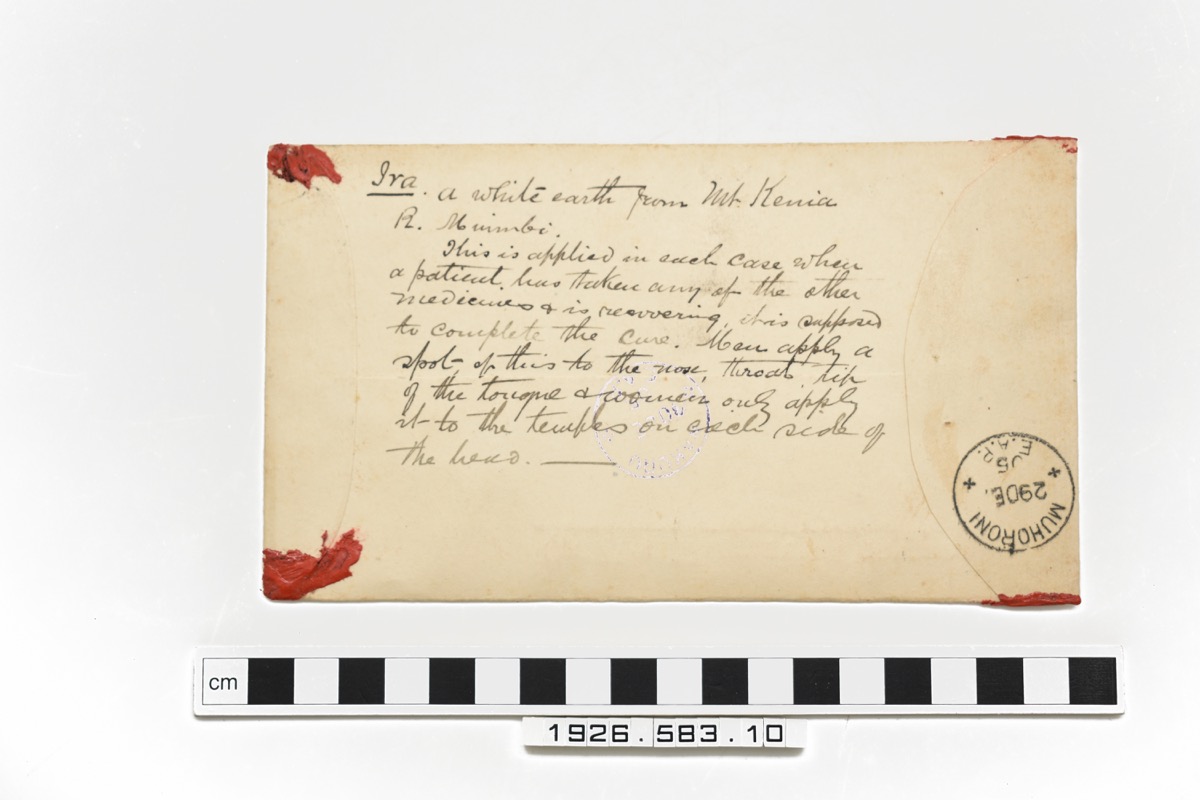 Ira. a white earth from Mt. Kenia
R. Muimbi.
This is applied in each case when
a patient has taken any of the other
medicines & is recovering, it is supposed
to complete the cure. Men apply a
spot of this to the nose, throat, tip
of the tongue & women only apply
it to the temples on each side of
the head.
MUHORONI
29 DE.
05
E.A.P.
cm
1926.583.10